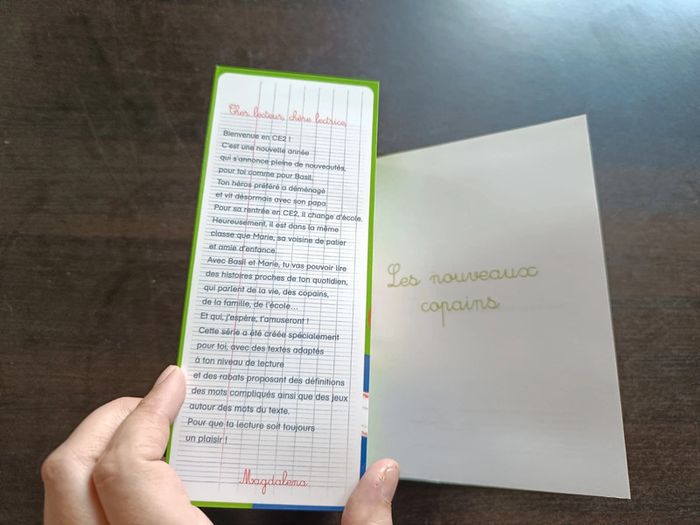 Cher lecteur, chère lectrice,
Bienvenue en CE2 !
C'est une nouvelle année
qui s'annonce pleine de nouveautés,
pour toi comme pour Basil.
Ton héros préféré a déménagé
et vit désormais avec son papa.
Pour sa rentrée en CE2, il change d'école.
Heureusement, il est dans la même
classe que Marie, sa voisine de palier
et amie d'enfance.
Avec Basil et Marie, tu vas pouvoir lire
des histoires proches de ton quotidien,
qui parlent de la vie, des copains,
de la famille, de l'école...
Et qui, j'espère, t'amuseront !
Cette série a été créée spécialement
pour toi, avec des textes adaptés
à ton niveau de lecture
et des rabats proposant des définitions
des mots compliqués ainsi que des jeux
autour des mots du texte.
Pour que ta lecture soit toujours
un plaisir !
Magdalena
Les nouveaux
copains